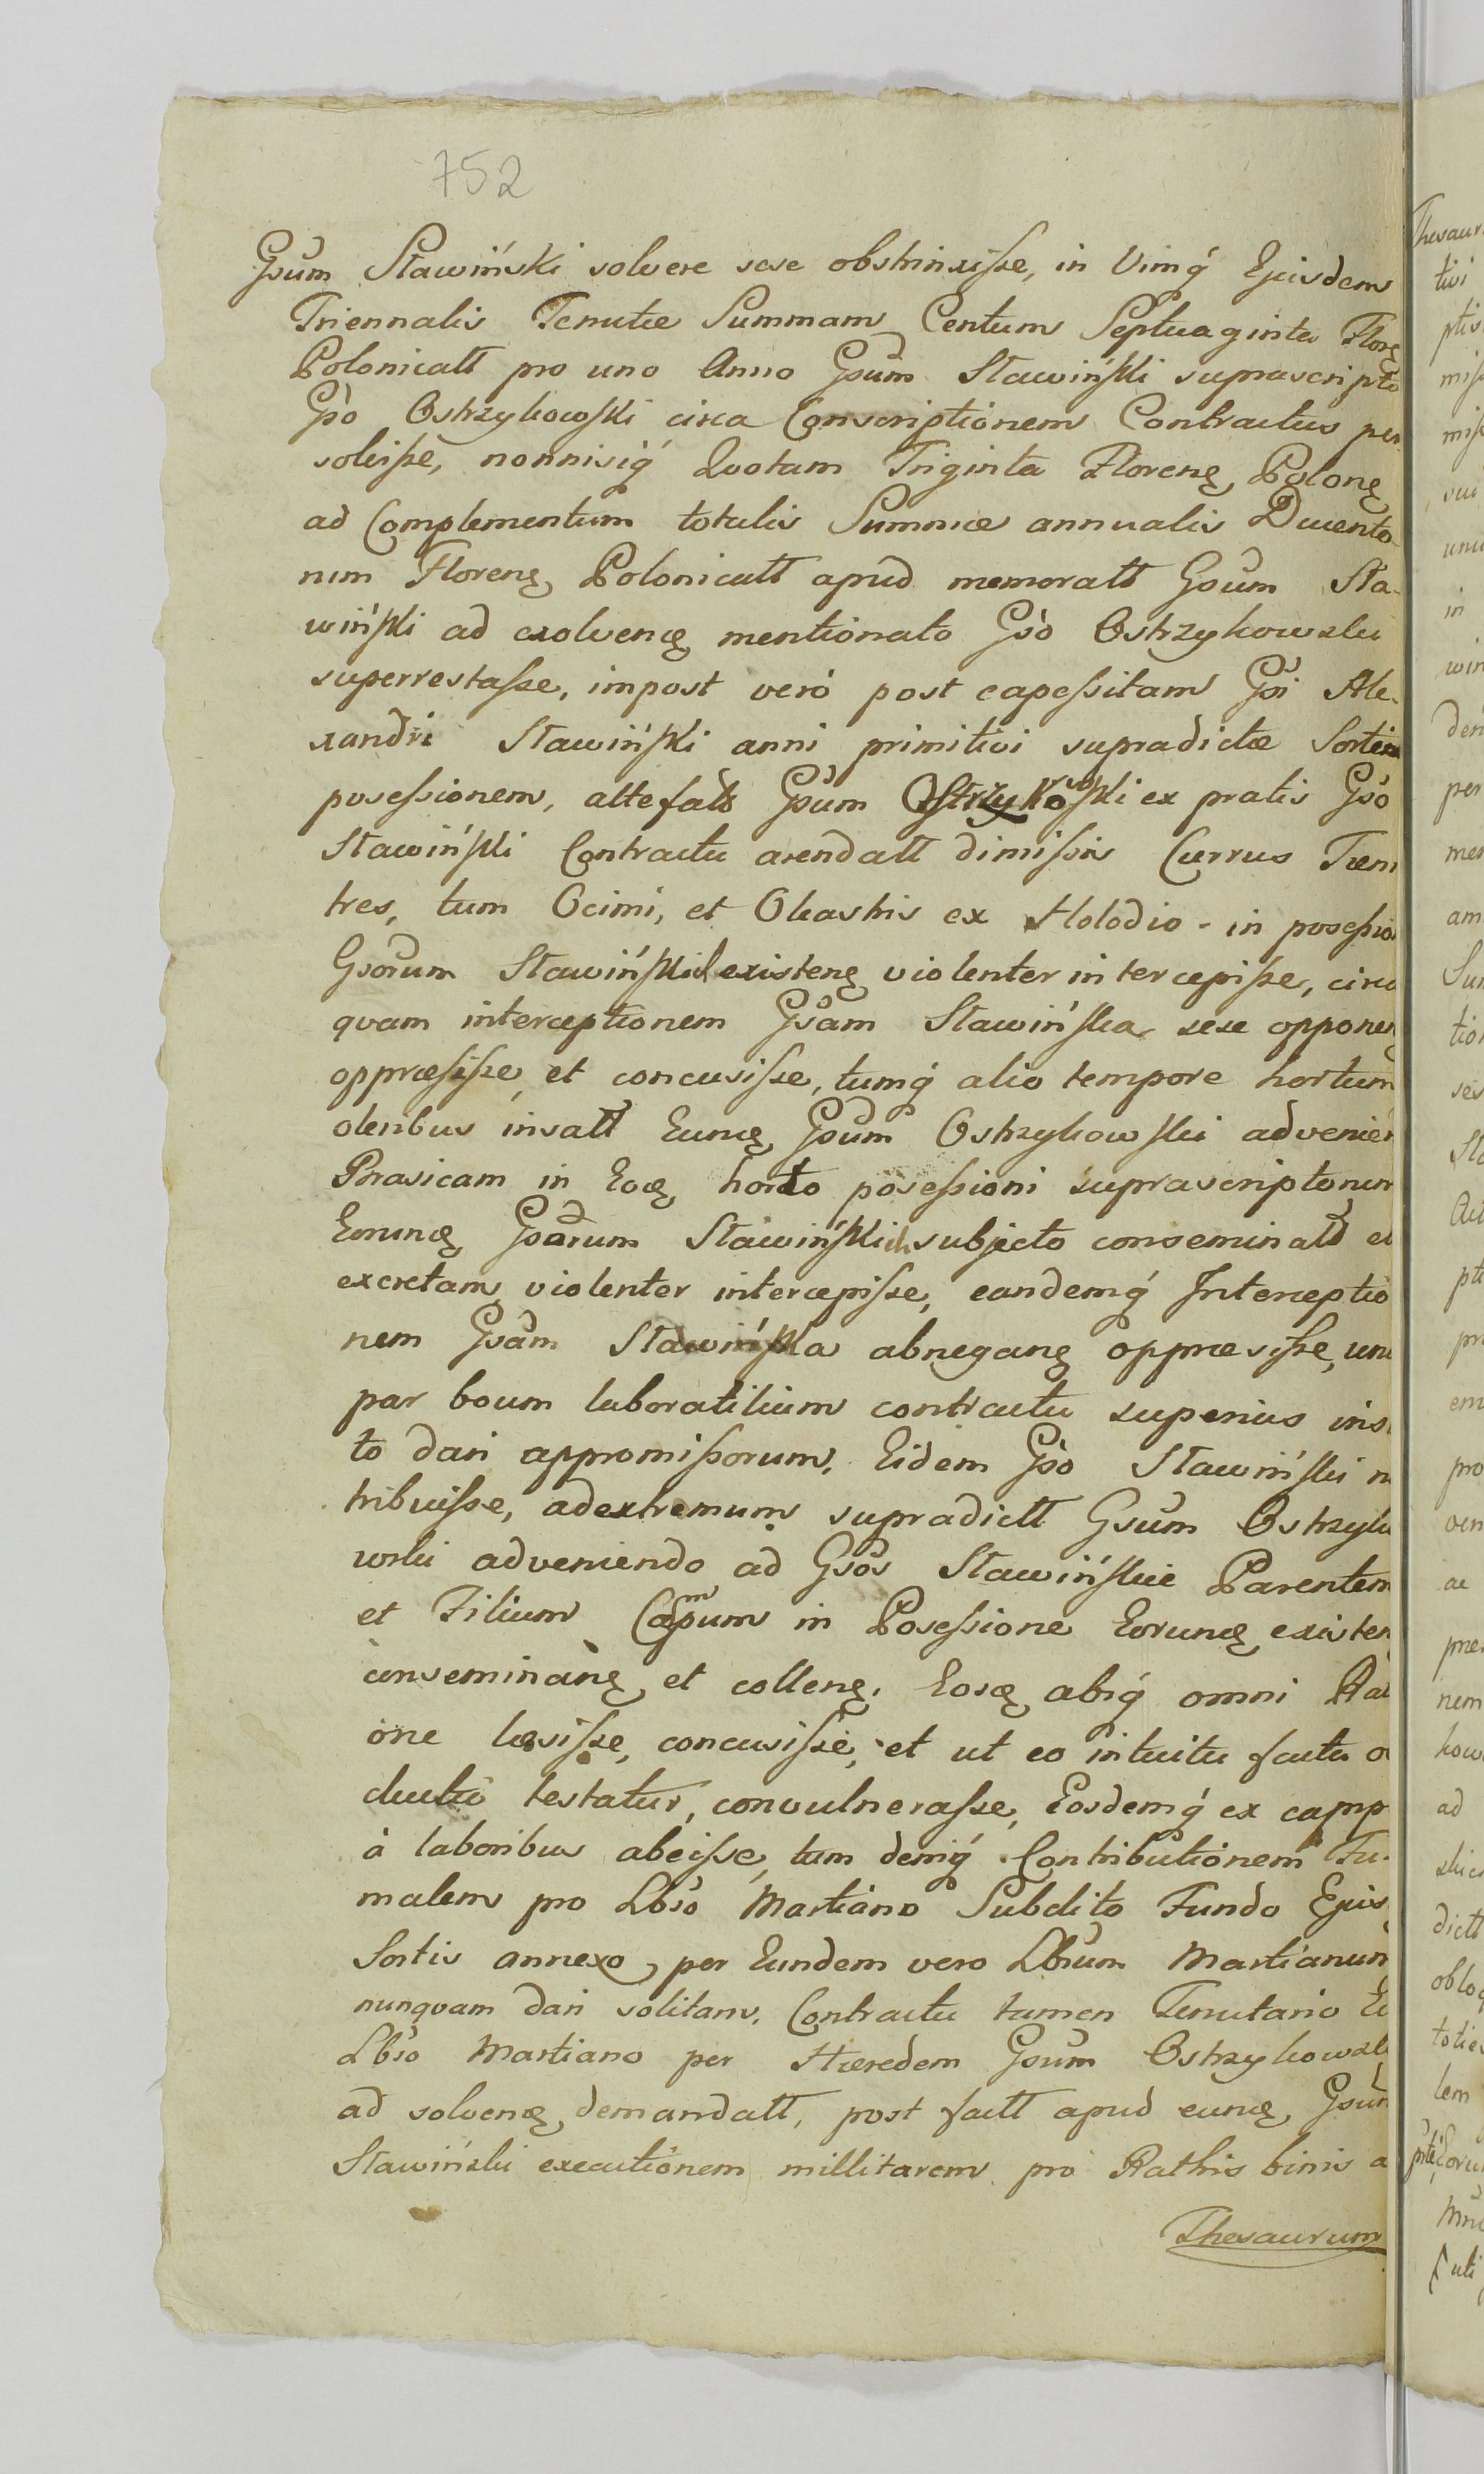 752
Gsum Sławiński solvere sese obstrinxisse, in Vimq́ Ejusdem
Triennalis Tenutæ Summam Centum Septuaginta Floreñ
Polonicall pro uno Anno Gsum Sławiński suprascripto
Gso Ostrzykowski circa Conscriptionem Contractus per
solvisse, nonnisiq́ Quotam Triginta Floreñ Poloñ
ad Complementum totalis Summæ annualis Ducento-
rum Floreñ Polonicall apud memoratt Gsum Sła-
wiński ad exolvenḑ mentionato Gso Ostrzykowski
superrestasse, impost vero post capessitam Gsi Ale-
xandri Sławiński anni primitivi supradictæ Sortis
possessionem, attefatt Gsum Ostrzykowski ex pratis Gso
Sławiński Contractu arendatt dimissis Currus Fæni
tres, tum Ocimi, et Oleastris ex Hołodio - in possessio
Gsorum Sławińskich existenţ violenter intercepisse, circa
quam interceptionem Gsam Sławińska sese opponen
oppræsisse et concusisse, tumq́ alio tempore hortum
oleribus insatt Eunḑ Gsum Ostrzykowski advenien
Brasicam in Eoḑ horto posessioni suprascriptorum
Eorunḑ Gsorum Sławińskich subjecto conseminatt et
excretam violenter intercepisse, eandemq́ Interceptio
nem Gsam Sławińska abneganţ oppræsisse, unu
par boum laboratilium contractu superius ins
to dari appromissorum, Eidem Gso Sławiński n
tribuisse, ad extremum supradictt Gsum Ostrzyko
wski adveniendo ad Gsos Sławińskie Parentem
et Filium Campum in Posessione Eorunḑ existen
conseminanţ et collenţ. Eosḑ absq́ omni Rati
one læsisse, concusisse, et ut eo intuitu facta o
ductio testatur, convulnerasse, Eosdemq́ ex camp
à laboribus abeisse, tum demq́ Contributionem Fu-
malem pro Lbso Martiano Subdito Fundo Ejus
Sortis annexo, per Eundem vero Lbsum Martianum
nunquam dari solitam, Contractu tamen Tenutario E
Lbso Martiano per Hæredem Gsum Ostrzykowski
ad solvenḑ demandatt, post factt apud eunḑ Gsum
Sławiński executionem millitarem pro Rathis binis a
Thesaurum